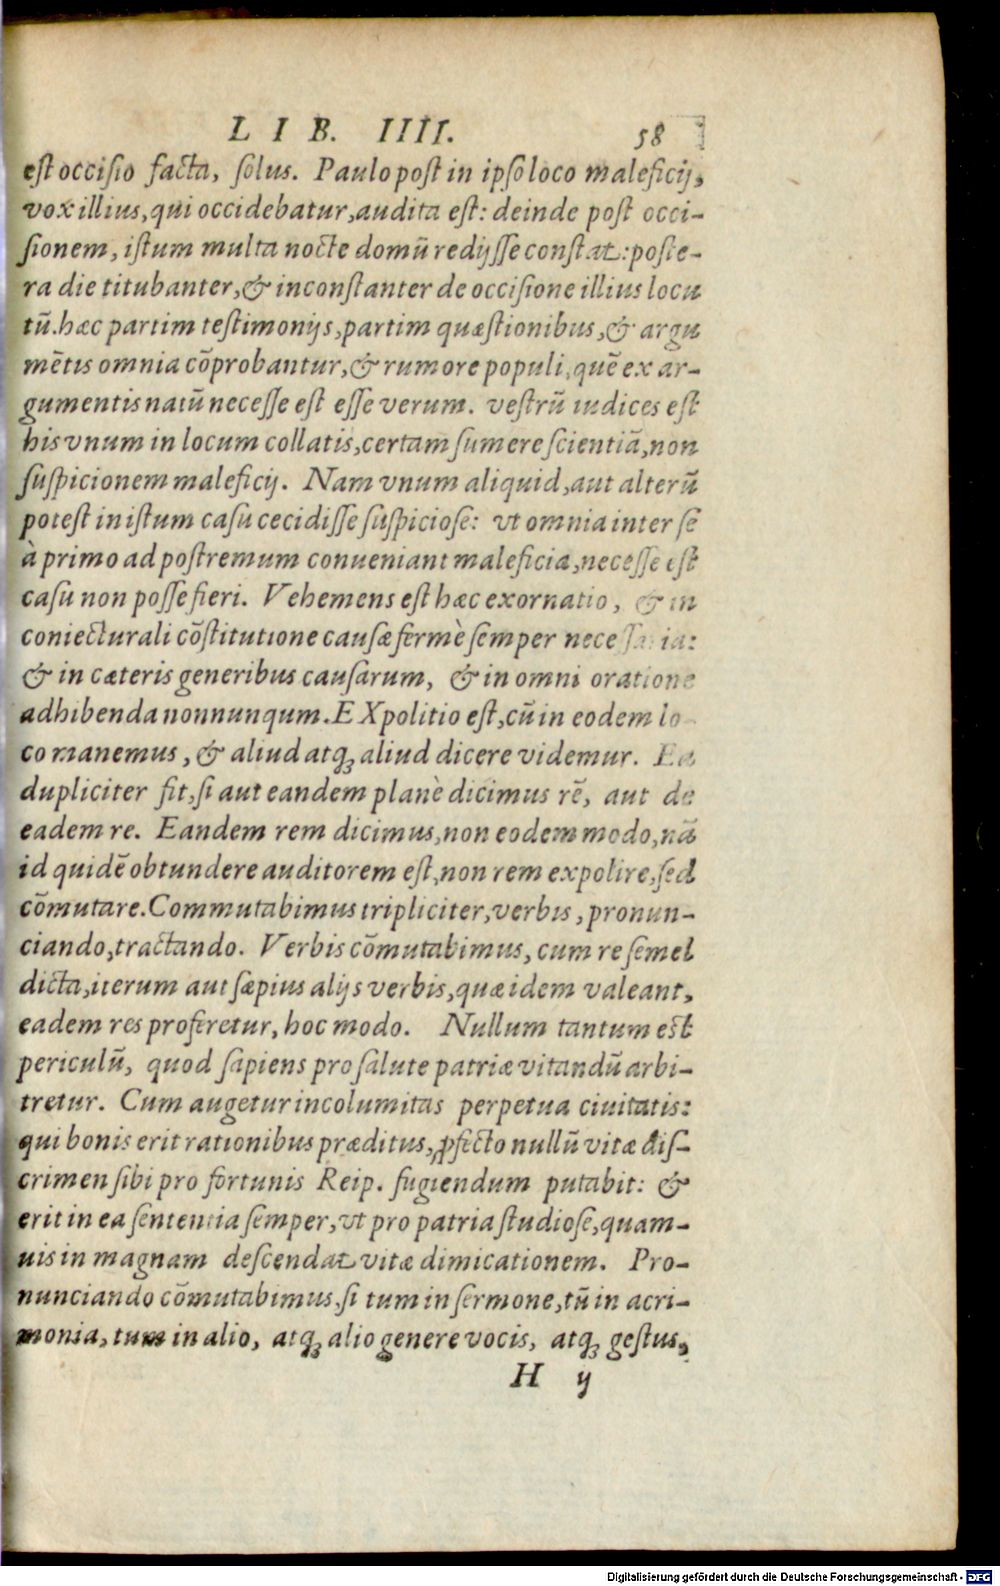 LIB. IIII. 58
est occisio facta, solus. Paulo post in ipso loco maleficij,
vox illius, qui occidebatur, audita est: deinde post occi-
sionem, istum multa nocte domũ redijsse constat: poste-
ra die titubanter, & inconstanter de occisione illius locu
tũ. hæc partim testimonijs, partim quæstionibus, & argu
mẽtis omnia cõprobantur, & rumore populi, quẽ ex ar-
gumentis natũ necesse est esse verum. vestrũ iudices est
his vnum in locum collatis, certam sumere scientiã, non
suspicionem maleficij. Nam vnum aliquid, aut alterũ
potest in istum casu cecidisse suspiciose: vt omnia inter se
à primo ad postremum conueniant maleficia, necesse est
casu non posse fieri. Vehemens est hæc exornatio, & in
coniecturali cõstitutione causæ fermè semper necessaria:
& in cæteris generibus causarum, & in omni oratione
adhibenda nonnunqum. EXpolitio est, cũ in eodem lo-
co manemus, & aliud atq; aliud dicere videmur. Ea
dupliciter fit, si aut eandem planè dicimus rẽ, aut de
eadem re. Eandem rem dicimus, non eodem modo, nã
id quidẽ obtundere auditorem est, non rem expolire, sed
cõmutare. Commutabimus tripliciter, verbis, pronun-
ciando, tractando. Verbis cõmutabimus, cum re semel
dicta, iterum aut sæpius alijs verbis, quæ idem valeant,
eadem res proferetur, hoc modo. Nullum tantum est
periculũ, quod sapiens pro salute patriæ vitandũ arbi-
tretur. Cum augetur incolumitas perpetua ciuitatis:
qui bonis erit rationibus præditus, ꝓfecto nullũ vitæ dis-
crimen sibi pro fortunis Reip. fugiendum putabit: &
erit in ea sententia semper, vt pro patria studiose, quam-
uis in magnam descendat vitæ dimicationem. Pro-
nunciando cõmutabimus, si tum in sermone, tũ in acri-
monia, tum in alio, atq; alio genere vocis, atq; gestus,
H ij
Digitalisierung gefördert durch die Deutsche Forschungsgemeinschaft - DFG